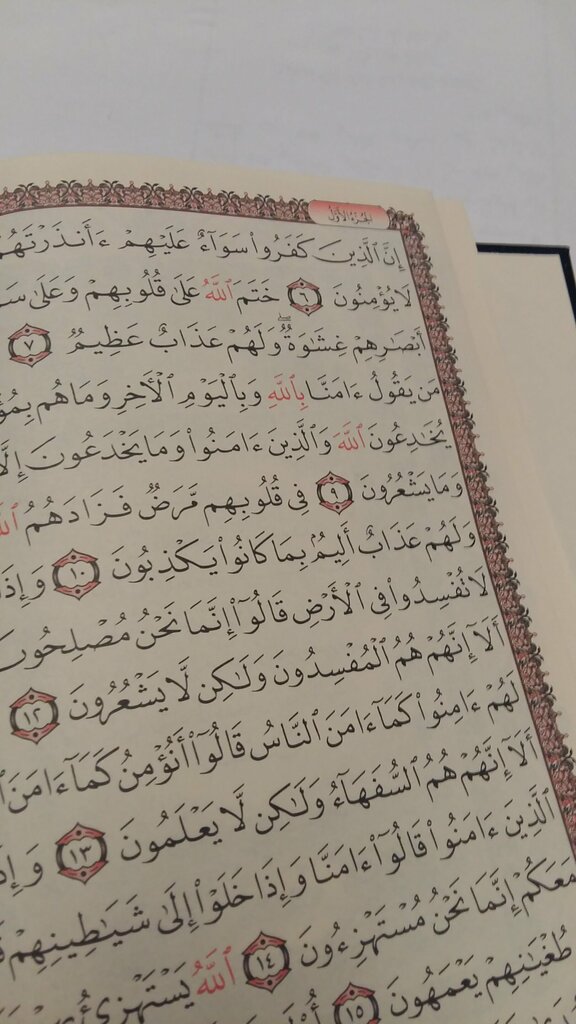 الجزء الأول
إِنَّ ٱلَّذِينَ كَفَرُوا۟ سَوَآءٌ عَلَيْهِمْ ءَأَنذَرْتَهُمْ
لَا يُؤْمِنُونَ ٦ خَتَمَ ٱللَّهُ عَلَىٰ قُلُوبِهِمْ وَعَلَىٰ
أَبْصَـٰرِهِمْ غِشَـٰوَةٌ ۖ وَلَهُمْ عَذَابٌ عَظِيمٌ ٧
مَن يَقُولُ ءَامَنَّا بِٱللَّهِ وَبِٱلْيَوْمِ ٱلْـَٔاخِرِ وَمَا هُم
يُخَـٰدِعُونَ ٱللَّهَ وَٱلَّذِينَ ءَامَنُوا۟ وَمَا يَخْدَعُونَ إِلَّآ
وَمَا يَشْعُرُونَ ٩ فِى قُلُوبِهِم مَّرَضٌ فَزَادَهُمُ
وَلَهُمْ عَذَابٌ أَلِيمٌۢ بِمَا كَانُوا۟ يَكْذِبُونَ ١٠ وَإِذَا
لَا تُفْسِدُوا۟ فِى ٱلْأَرْضِ قَالُوٓا۟ إِنَّمَا نَحْنُ مُصْلِحُونَ
أَلَآ إِنَّهُمْ هُمُ ٱلْمُفْسِدُونَ وَلَـٰكِن لَّا يَشْعُرُونَ ١٢
لَهُمْ ءَامِنُوا۟ كَمَآ ءَامَنَ ٱلنَّاسُ قَالُوٓا۟ أَنُؤْمِنُ كَمَآ ءَامَنَ
أَلَآ إِنَّهُمْ هُمُ ٱلسُّفَهَآءُ وَلَـٰكِن لَّا يَعْلَمُونَ ١٣ وَإِذَا
ٱلَّذِينَ ءَامَنُوا۟ قَالُوٓا۟ ءَامَنَّا وَإِذَا خَلَوْا۟ إِلَىٰ شَيَـٰطِينِهِمْ
مَعَكُمْ إِنَّمَا نَحْنُ مُسْتَهْزِءُونَ ١٤ ٱللَّهُ يَسْتَهْزِئُ
طُغْيَـٰنِهِمْ يَعْمَهُونَ ١٥